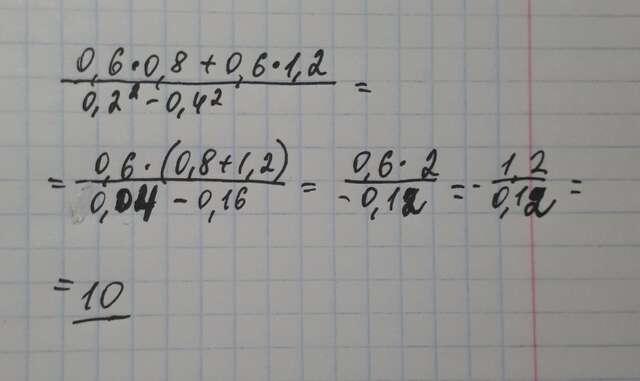 (0,6·0,8+0,6·1,2)/(0,2²-0,4²) =
= (0,6·(0,8+1,2))/(0,04-0,16) = (0,6·2)/(-0,12) = -1,2/0,12 =
= 10